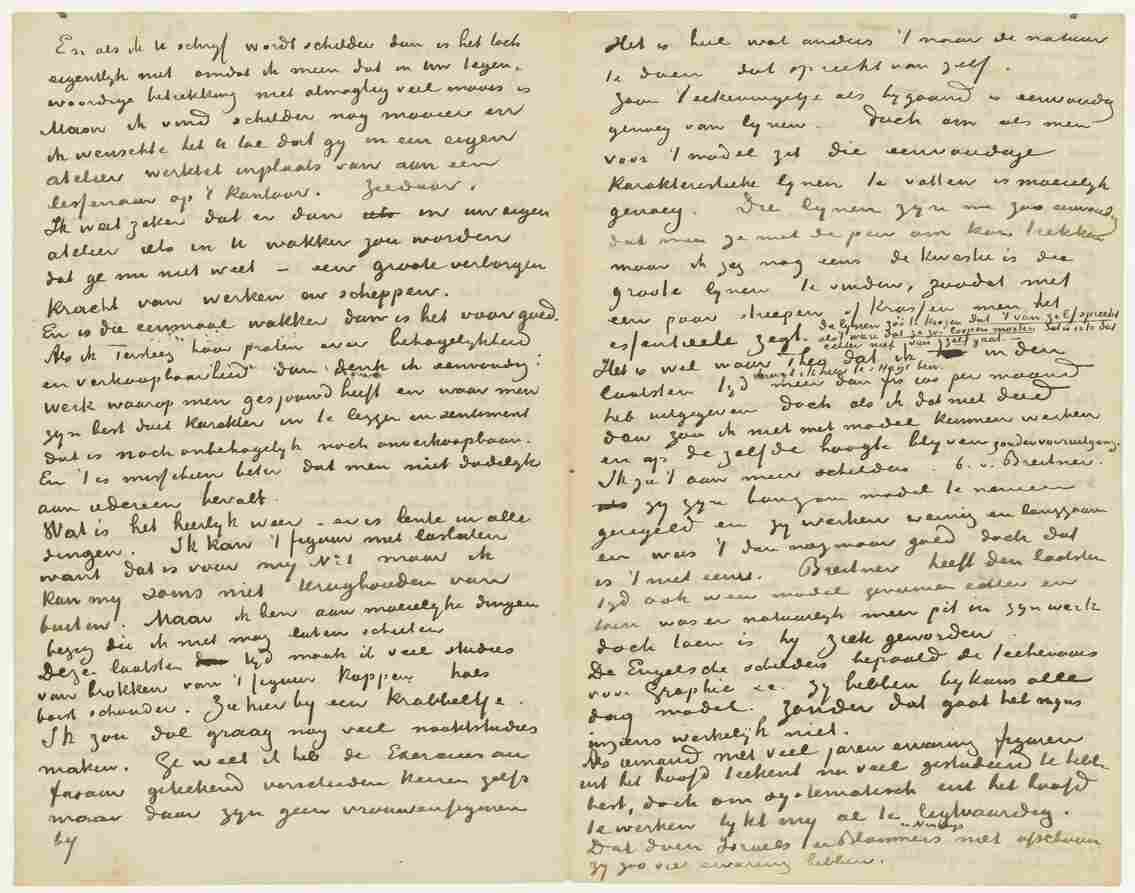 En als ik U schrijf wordt schilder dan is het toch
eigentlijk niet omdat ik meen dat in Uw tegen-
woordige betrekking niet almagtig veel moois is
Maar ik vind schilder nog mooier en
ik wenschte het U toe dat gij in een eigen
atelier werktet inplaats van aan een
lessenaar op 't kantoor. Ziedaar.
Ik weet zeker dat er dan in uw eigen
atelier iets in U wakker zou worden
dat ge nu niet weet – een groote verborgen
kracht van werken en scheppen.
En is die eenmaal wakker dan is het voor goed.
Als ik Tersteeg hoor praten over behagelijkheid
en verkoopbaarheid dan denk ik eenvoudig:
werk waarop men gesjouwd heeft en waar men
zijn best doet karakter in te leggen en sentiment
dat is noch onbehagelijk noch onverkoopbaar.
En 't is misschien beter dat men niet dadelijk
aan iedereen bevalt.
Wat is het heerlijk weer – er is lente in alle
dingen. Ik kan 't figuur niet loslaten
want dat is voor mij No 1 maar ik
kan mij soms niet terughouden van
buiten. Maar ik ben aan moeielijke dingen
bezig die ik niet mag laten schieten
Deze laatsten tijd maak ik veel studies
van brokken van 't figuur koppen hals
borst schouder. Zie hierbij een krabbeltje.
Ik zou dol graag nog veel naaktstudies
maken. Ge weet ik heb de Exercices au
fusain geteekend verscheiden keeren zelfs
maar daar zijn geen vrouwenfiguren
bij
Het is heel wat anders 't naar de natuur
te doen dat spreekt van zelf.
Zoo'n teekeningetje als bijgaand is eenvoudig
genoeg van lijnen. Doch om als men
voor 't model zit die eenvoudige
karakteristieke lijnen te vatten is moeielijk
genoeg. Die lijnen zijn nu zoo eenvoudig
dat men ze met de pen om kan trekken
maar ik zeg nog eens de kwestie is die
groote lijnen te vinden, zoodat met
een paar streepen of krassen men het
essentieele zegt.
de lijnen zoo te kiezen dat 't van zelf spreekt
als 't ware dat ze zoo loopen moeten dat is iets dat
echter niet van zelf gaat.
Het is wel waar Theo dat ik in den
laatsten tijd meer dan frs 100 per maand
heb uitgegeven doch als ik dat niet deed
dan zou ik niet met model kunnen werken
en op de zelfde hoogte blijven zonder vooruitgang.
Ik zie 't aan meer schilders. b.v. Breitner.
zij zijn bang om model te nemen
geregeld en zij werken weinig en langzaam
en was 't dan nog maar goed doch dat
is 't niet eens. Breitner heeft den laatsten
tijd ook weer model genomen en
toen was er natuurlijk meer pit in zijn werk
doch toen is hij ziek geworden.
De Engelsche schilders bepaald de teekenaars
voor Graphic &c. zij hebben bijkans alle
dag model. Zonder dat gaat het
werkelijk niet.
Als iemand met veel jaren ervaring figuren
uit het hoofd teekent na veel gestudeerd te hebben
best, doch om systematisch uit het hoofd
te werken lijkt mij al te ligtvaardig.
Dat doen Israels en Blommers en Neuhuys niet ofschoon
zij zoo veel ervaring hebben.